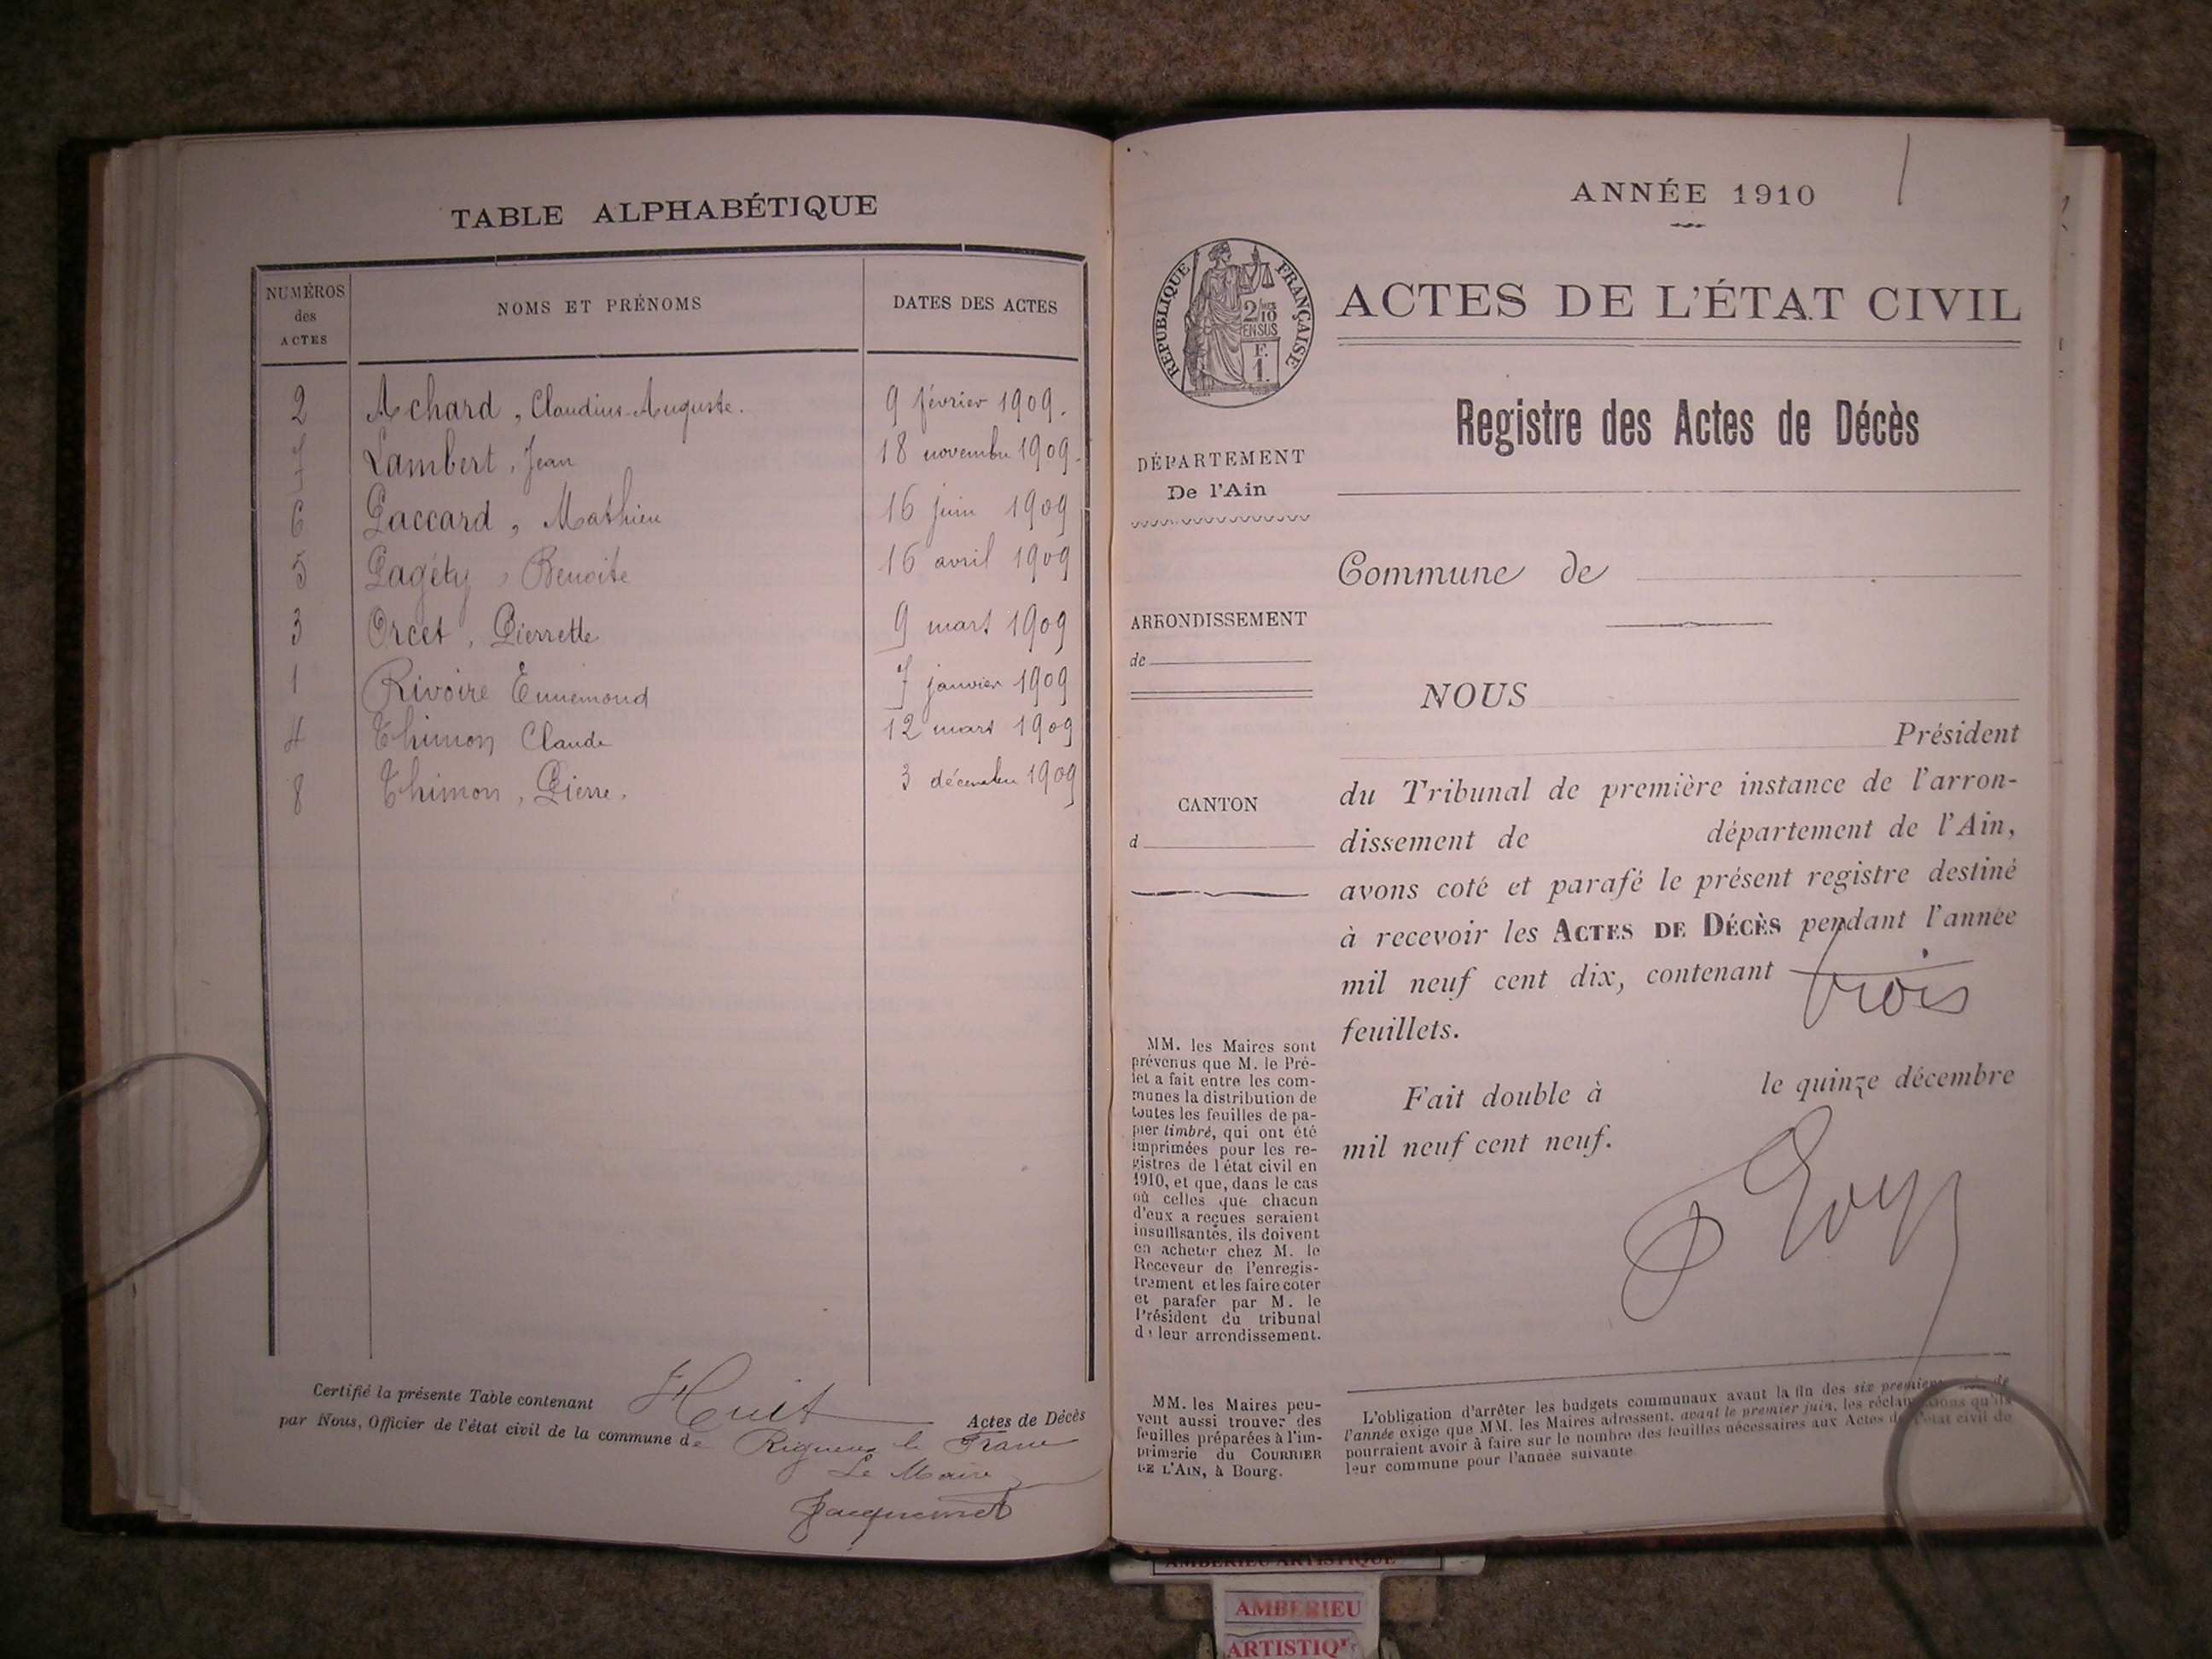 TABLE ALPHABÉTIQUE
NUMÉROS des ACTES
NOMS ET PRÉNOMS
DATES DES ACTES
2 Achard, Claudius-Auguste. 9 février 1909.
7 Lambert, Jean 18 novembre 1909.
6 Paccard, Mathieu 16 juin 1909
5 Pagéty, Benoite 16 avril 1909
3 Orcet, Pierrette 9 mars 1909
1 Rivoire Ennemond 7 janvier 1909
4 Thimon Claude 12 mars 1909
8 Thimon, Pierre. 3 décembre 1909
Certifié la présente Table contenant Huit Actes de Décès
par Nous, Officier de l'état civil de la commune de Rigneux le Franc
Le Maire
Jacquemet
1
ANNÉE 1910
RÉPUBLIQUE FRANÇAISE
2/10
EN SUS
F.
1.
ACTES DE L'ÉTAT CIVIL
Registre des Actes de Décès
DÉPARTEMENT
De l'Ain
Commune de
ARRONDISSEMENT
de
NOUS
Président
du Tribunal de première instance de l'arron-
dissement de département de l'Ain,
avons coté et parafé le présent registre destiné
à recevoir les ACTES DE DÉCÈS pendant l'année
mil neuf cent dix, contenant trois
feuillets.
CANTON
d
Fait double à le quinze décembre
mil neuf cent neuf.
MM. les Maires sont
prévenus que M. le Pré-
fet a fait entre les com-
munes la distribution de
toutes les feuilles de pa-
pier timbré, qui ont été
imprimées pour les re-
gistres de l'état civil en
1910, et que, dans le cas
où celles que chacun
d'eux a reçues seraient
insuffisantes, ils doivent
en acheter chez M. le
Receveur de l'enregis-
trement et les faire coter
et parafer par M. le
Président du tribunal
de leur arrondissement.
MM. les Maires peu-
vent aussi trouver des
feuilles préparées à l'im-
primerie du COURRIER
DE L'AIN, à Bourg.
L'obligation d'arrêter les budgets communaux avant la fin des six premiers mois de
l'année exige que MM. les Maires adressent, avant le premier juin, les réclamations qu'ils
pourraient avoir à faire sur le nombre des feuilles nécessaires aux Actes de l'état civil de
leur commune pour l'année suivante.
AMBERIEU ARTISTIQUE
AMBERIEU
ARTISTIQ